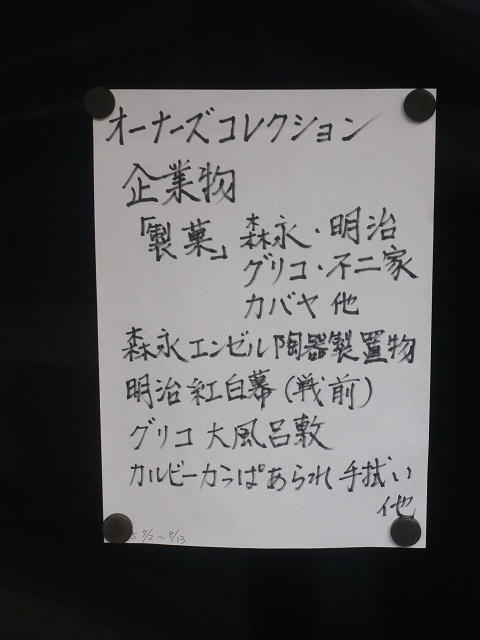 オーナーズコレクション
企業物
「製菓」 森永・明治
グリコ・不二家
カバヤ 他
森永エンゼル陶器製置物
明治紅白幕(戦前)
グリコ大風呂敷
カルビーカっぱあられ手拭い
他
7/2〜8/13